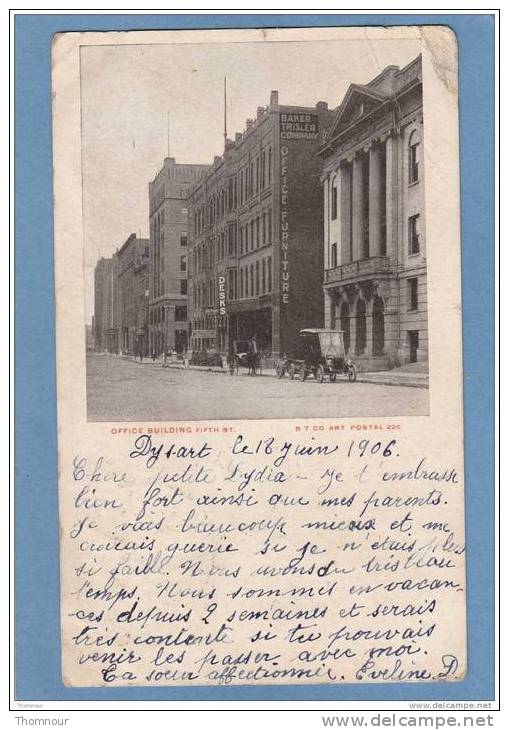 BAKER
TRISLER
COMPANY
OFFICE FURNITURE
DESKS
OFFICE BUILDING FIFTH ST. B T CO ART POSTAL 220
Dysart, le 18 juin 1906.
Chère petite Lydia - Je t'embrasse
bien fort ainsi que mes parents.
Je vais beaucoup mieux et me
croirais guérie si je n'étais plus
si faible. Nous avons du très beau
temps. Nous sommes en vacan-
ces depuis 2 semaines et serais
très contente si tu pouvais
venir les passer avec moi.
Ta sœur affectionnée. Eveline D.
Thomnour www.delcampe.net